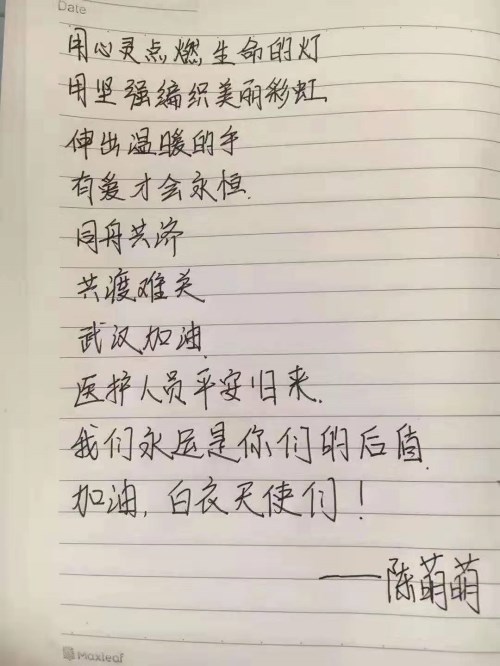 Date
用心灵点燃生命的灯
用坚强编织美丽彩虹
伸出温暖的手
有爱才会永恒.
同舟共济
共渡难关
武汉加油.
医护人员平安归来.
我们永远是你们的后盾.
加油,白衣天使们!
——陈萌萌
Maxleaf